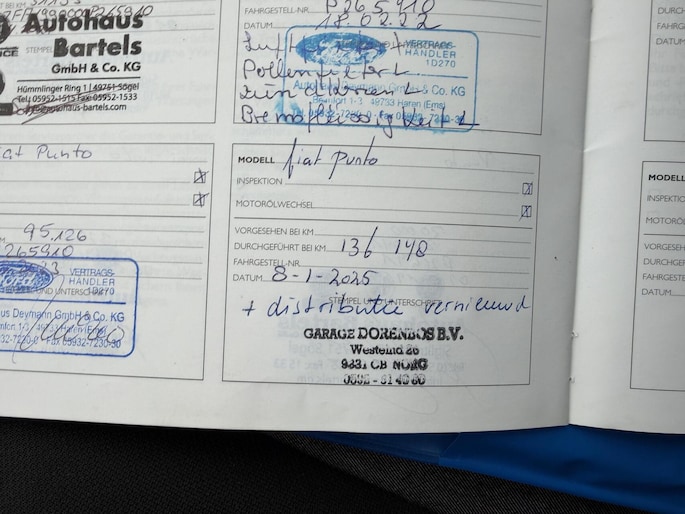 Autohaus
Bartels
GmbH & Co. KG
Hümmlinger Ring 1 | 49751 Sögel
Tel.: 05952-1515 Fax 05952-1533
autohaus-bartels.com
Fiat Punto
95.126
265910
VERTRAGS-
HÄNDLER
1D270
Deymann GmbH & Co. KG
49733 Haren (Ems)
Fax 05932-7230-30
FAHRGESTELL-NR. P265910
DATUM 18.02.22
VERTRAGS-
HÄNDLER
1D270
Pollenfilter
Autohaus Deymann GmbH & Co. KG
Zündkerzen
1-3 · 49733 Haren (Ems)
Bremsflüssigkeit
MODELL fiat punto
INSPEKTION X
MOTORÖLWECHSEL X
VORGESEHEN BEI KM
DURCHGEFÜHRT BEI KM 136 148
FAHRGESTELL-NR.
DATUM 8-1-2025
STEMPEL UND UNTERSCHRIFT
+ distributie vernieuwd
GARAGE DORENBOS B.V.
Westeind 26
9331 CB NORG
DURCH
FAHRGE
DATUM
MODELL
INSPEKT
MOTORÖ
VORGESEH
DURCHGE
FAHRGEST
DATUM